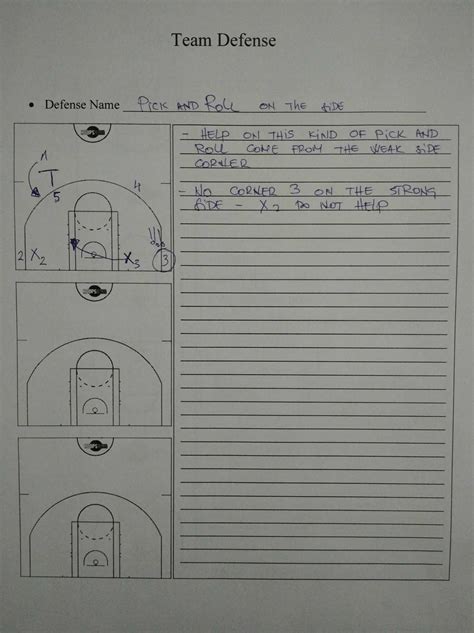 Team Defense
• Defense Name PICK AND ROLL ON THE SIDE
- HELP ON THIS KIND OF PICK AND
ROLL COME FROM THE WEAK SIDE
CORNER
- NO CORNER 3 ON THE STRONG
SIDE - X2 DO NOT HELP
1
5
4
!!!
2 X2
X3
3